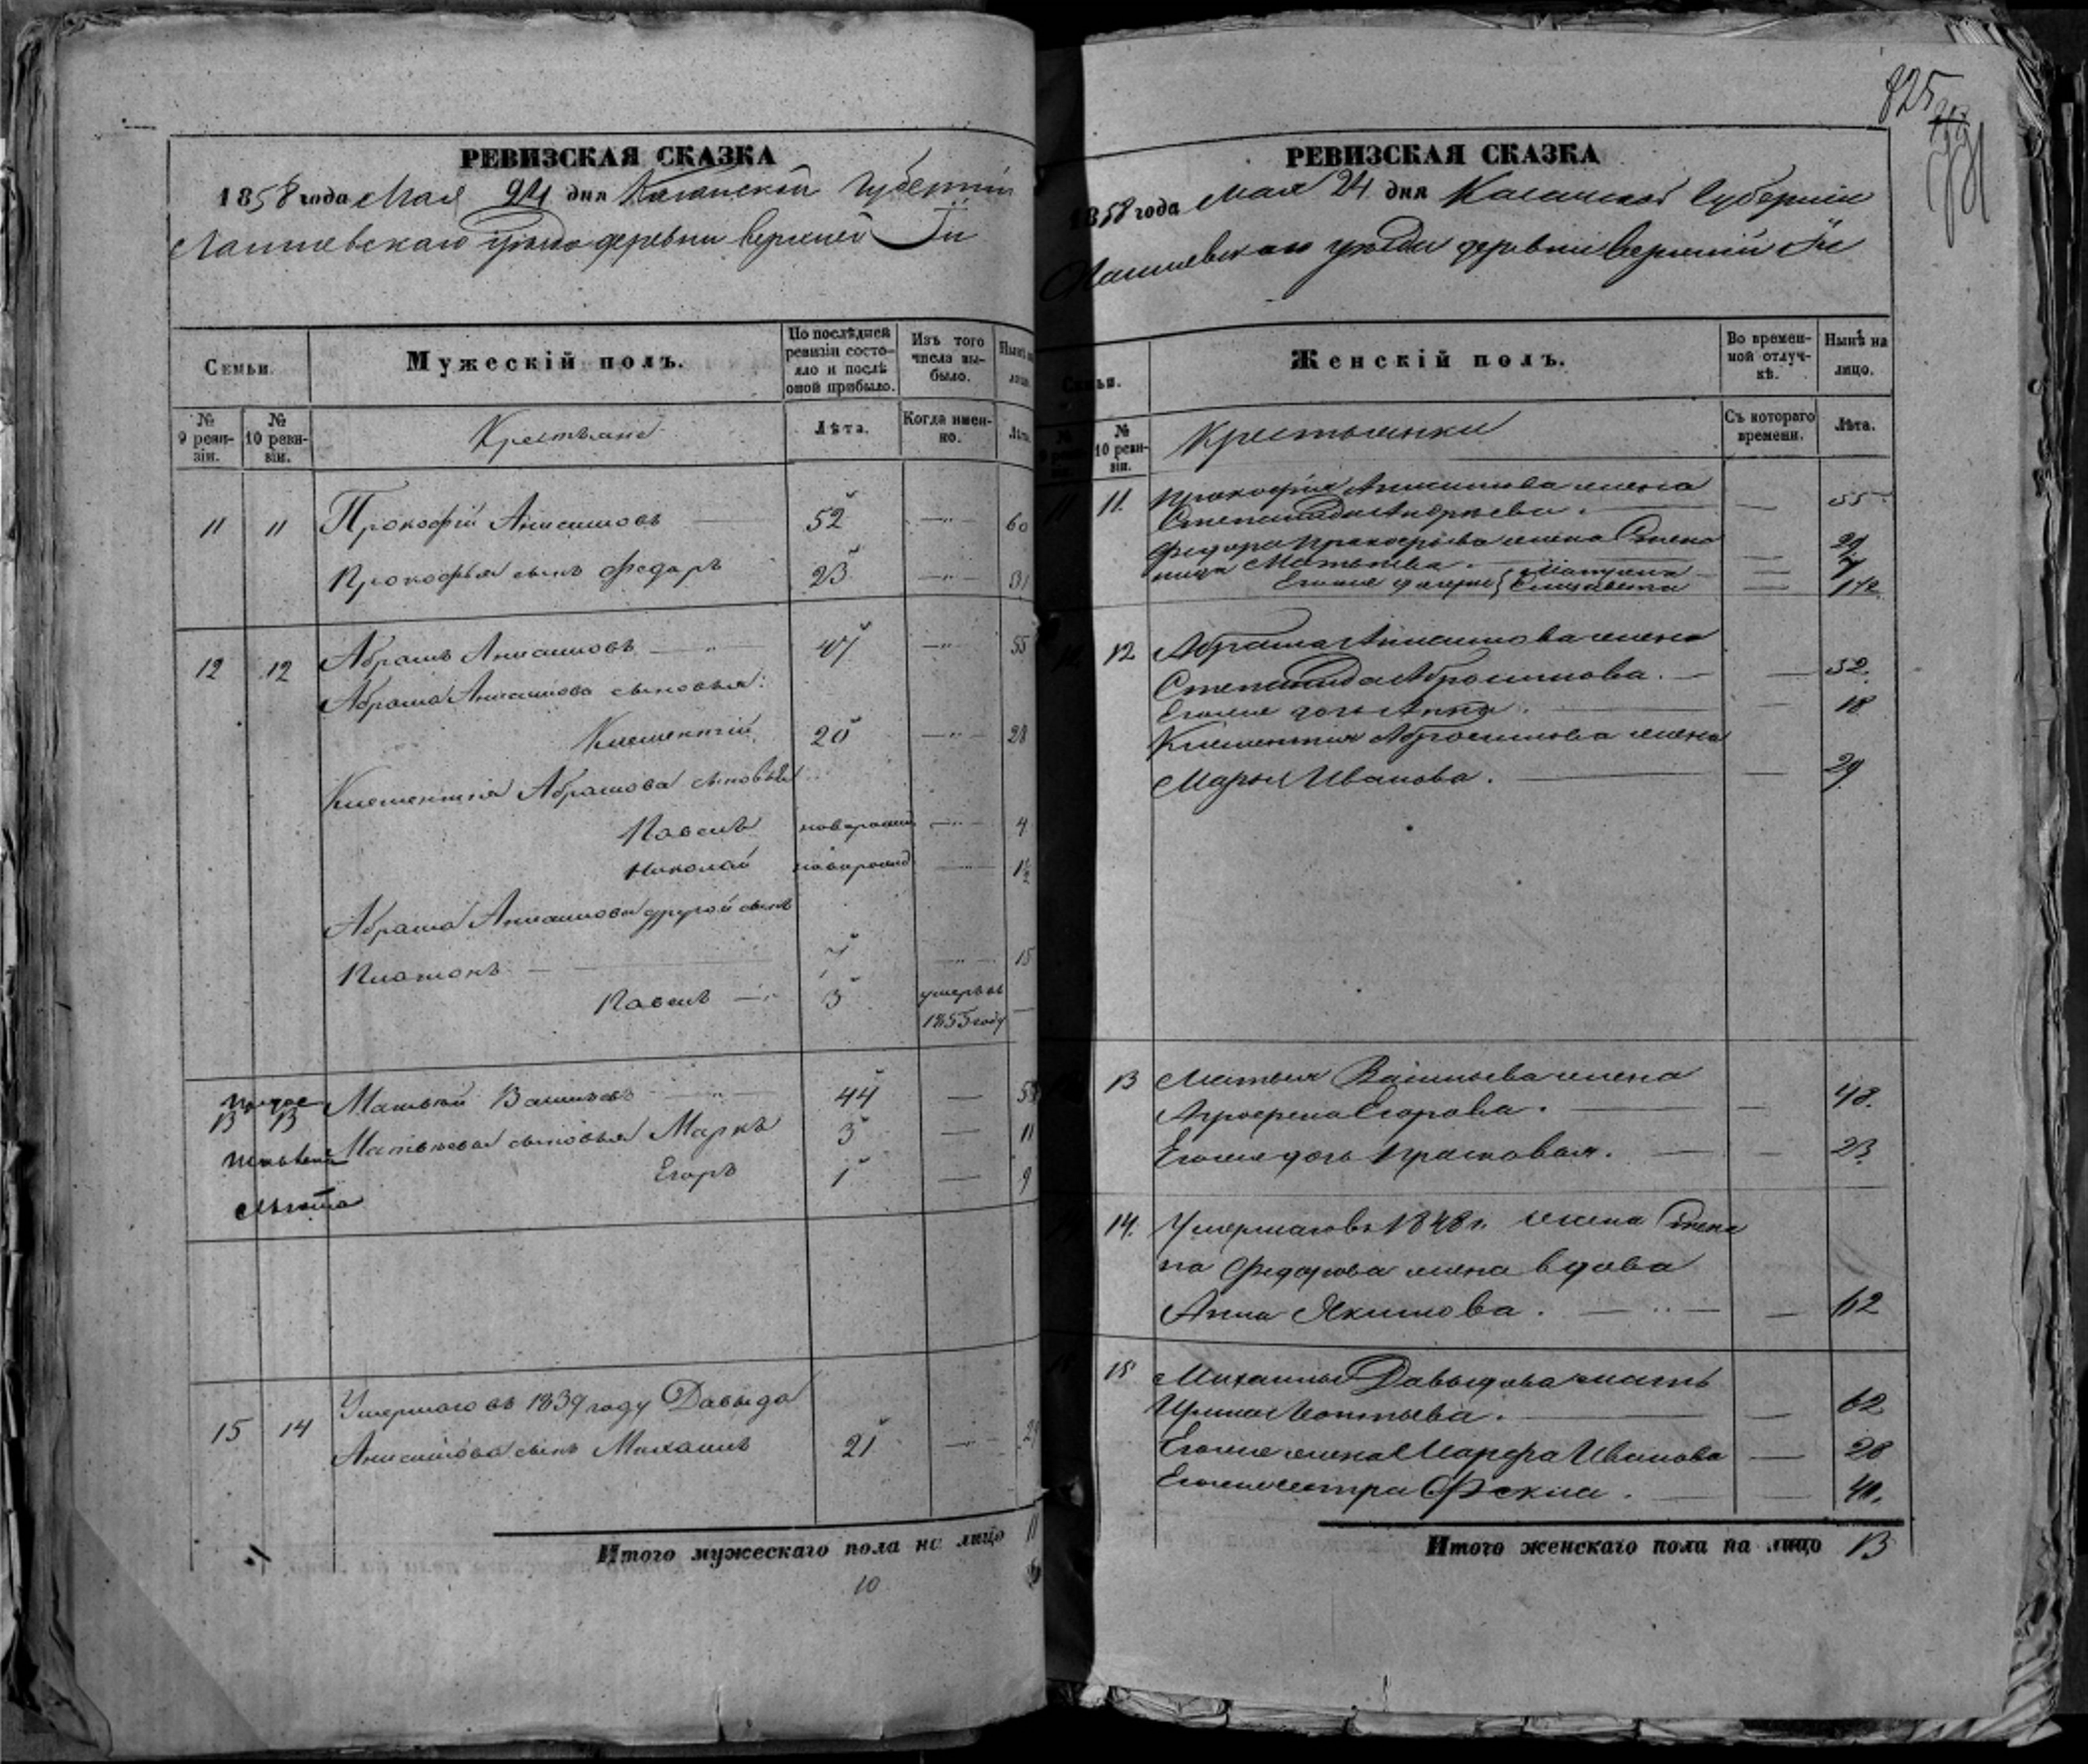 РЕВИЗСКАЯ СКАЗКА
1858 года Мая 24 дня Казанской Губернiи
Лаишевскаго уѣзда деревни верхней
Семьи.
Мужескiй полъ.
По послѣдней ревизiи состояло и послѣ оной прибыло.
Изъ того числа выбыло.
Нынѣ на лицо.
№ 9 ревизiи.
№ 10 ревизiи.
Крестьяне
Лѣта.
Когда именно.
Лѣта.
11 11 Прокофiй Анисимовъ — 52 —"— 60
Прокофья сынъ Федоръ 23 —"— 31
12 12 Абрамъ Анисимовъ —"— 47 —"— 55
Абрама Анисимова сыновья:
Клементiй 20 —"— 28
Клементiя Абрамова сыновья
Павелъ новорожд —"— 4
Николай новорожд —"— 1½
Абрама Анисимова другой сынъ
Платонъ — 7 —"— 15
Павелъ —"— 3 умеръ въ
1855 году —
13 13 Матвѣй Васильевъ —"— 44 —
Матвѣевы сыновья Маркъ 3 — 11
Егоръ 1 — 9
Умершаго въ 1839 году Давыда
15 14 Анисимова сынъ Михаилъ 21 —"— 29
Итого мужескаго пола на лицо 11
10
825
РЕВИЗСКАЯ СКАЗКА
1858 года Мая 24 дня Казанской Губернiи
Лаишевскаго уѣзда деревни верхнiй
Семьи.
Женскiй полъ.
Во временной отлучкѣ.
Нынѣ на лицо.
№ 10 ревизiи.
Крестьянки
Съ котораго времени.
Лѣта.
11 11. Прокофiя Анисимова жена
Степанида — — 55
Федора Прокофьева жена Степа
нида Матвѣева. — — 29
Егоже дочери { Матрена — 7
Елизавета — 1½
12 Абрама Анисимова жена
Степанида Абросимова. — — 52.
Егоже дочь Анна. — — 18
Клементiя Абросимова жена
Марья Иванова. — — 29
13 Матвея Васильева жена
Агрофена Егорова. — — 48.
Егоже дочь Прасковья. — — 23.
14. Умершаго въ 1848 г. жена Степа
на Федорова жена вдова
Анна Якимова. —"— — 62
15 Михаилы Давыдова мать
Леонтьева. — — 62
Егоже жена Марфа Иванова — 28
Егоже сестра Фекла. — — 40.
Итого женскаго пола на лицо 13